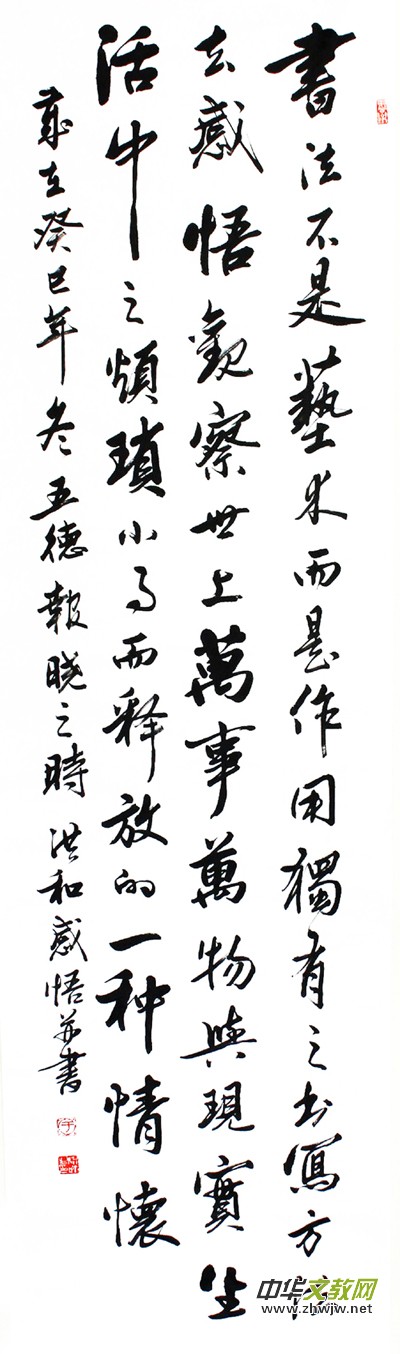 書法不是藝术而是作用獨有之书寫方法
去感悟觀察世上萬事萬物與現實生
活中之煩瑣小事而释放的一种情懷
歲在癸巳年冬五德報晓之時洪和感悟并書
中华文教网
www.zhwjw.net